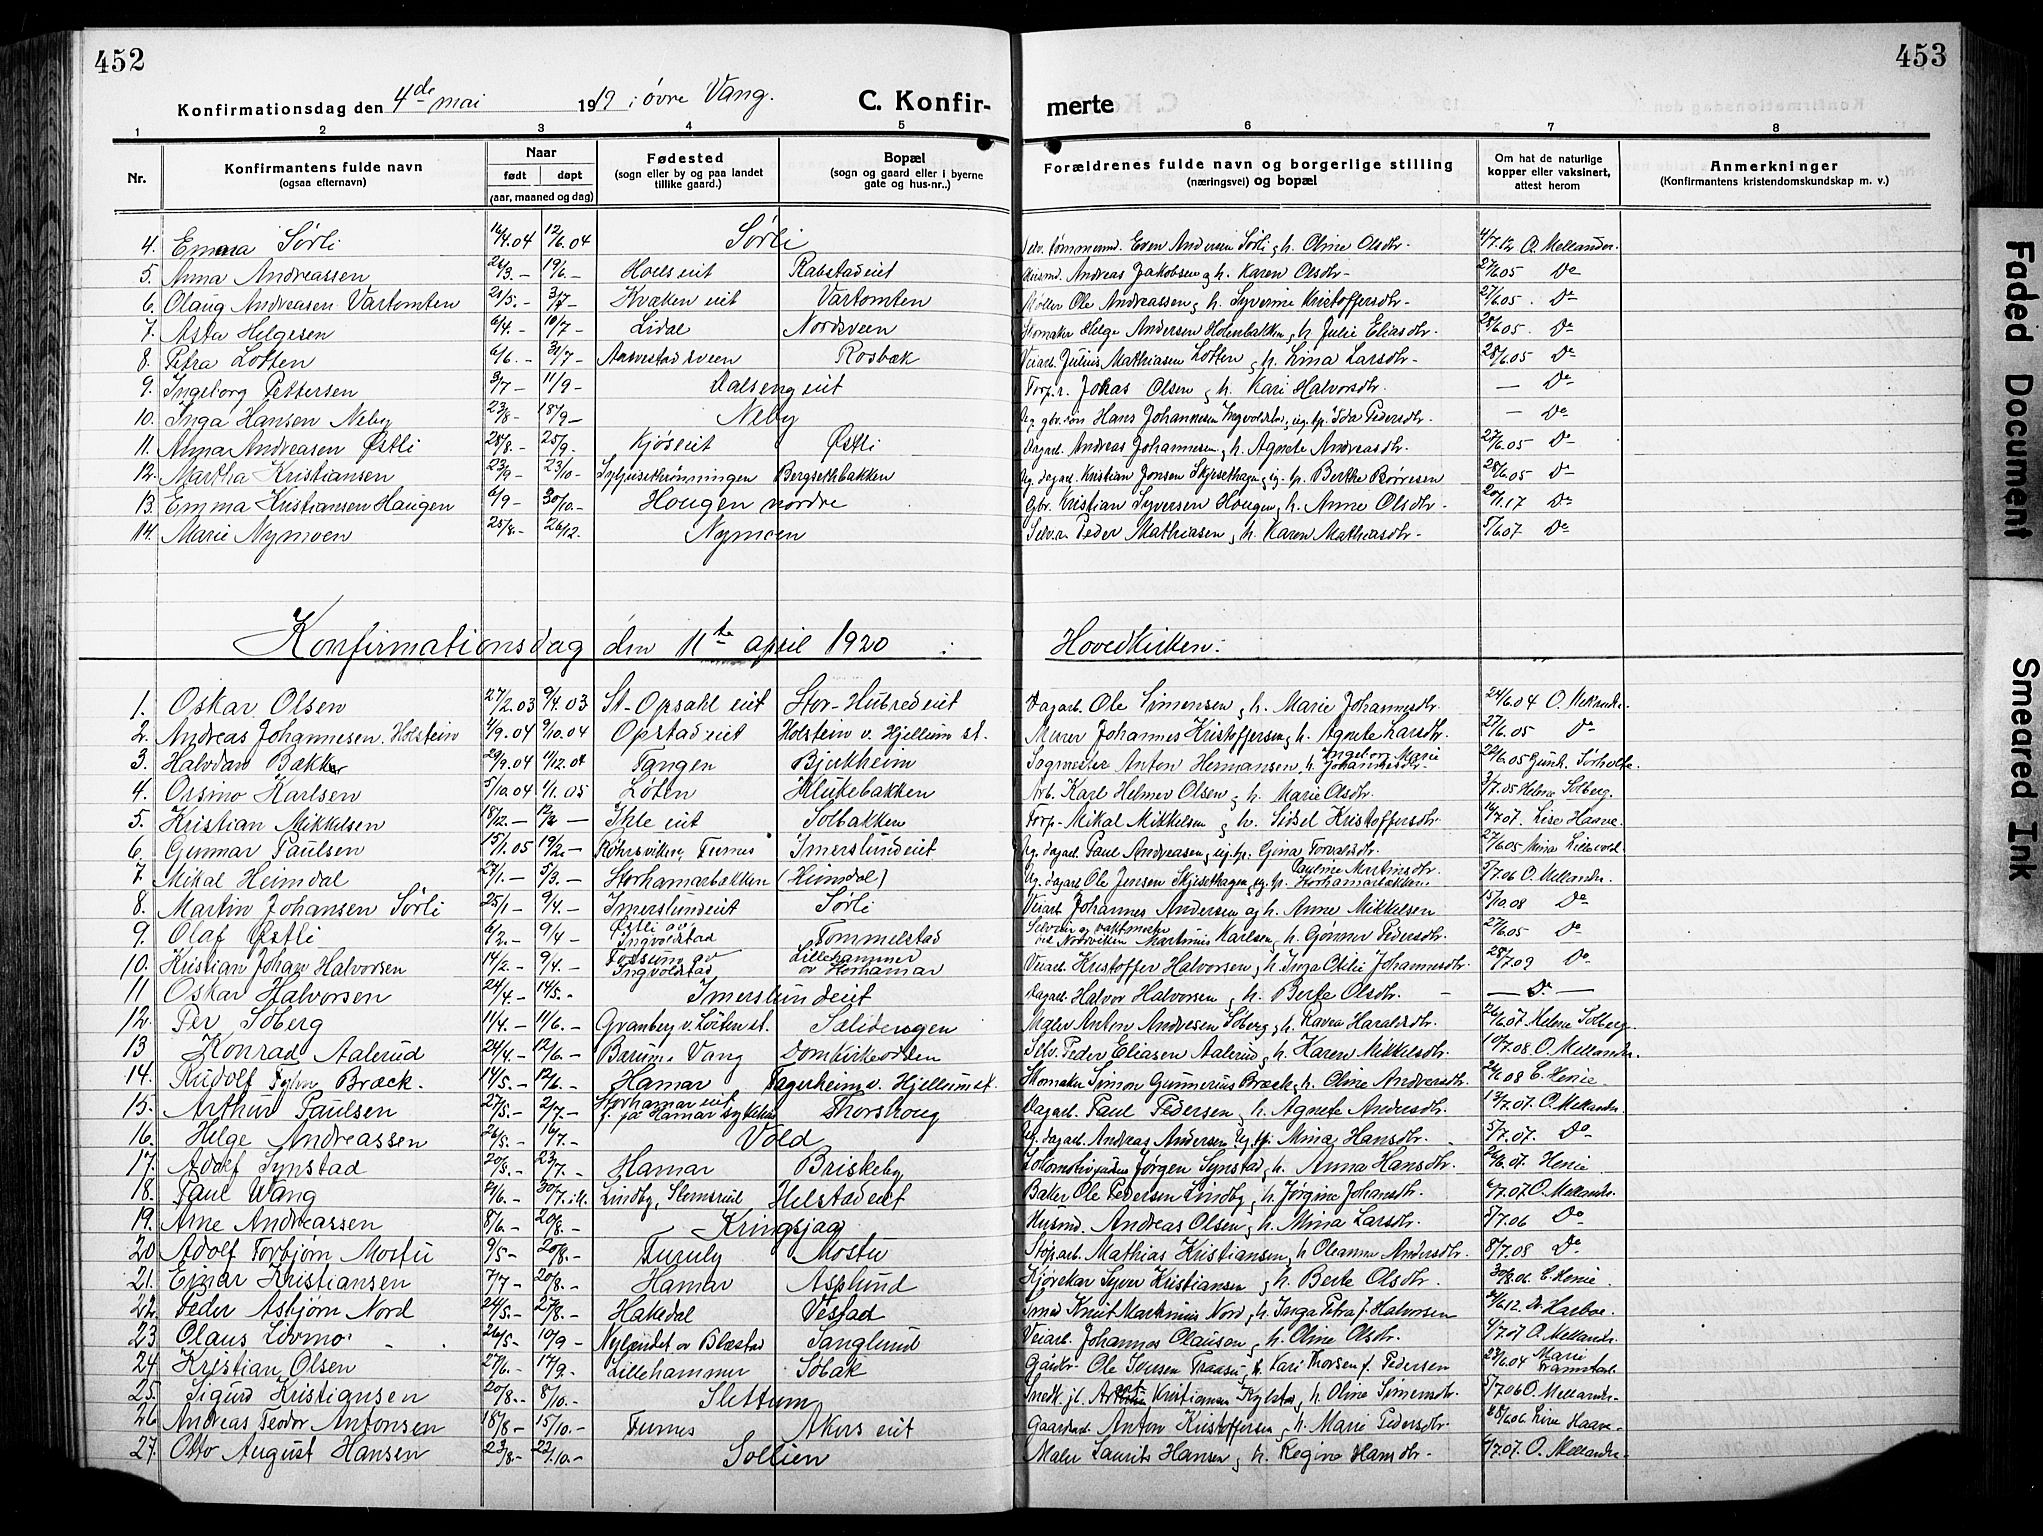 452
453
Konfirmationsdag den 4de mai 1919 i øvre Vang.
C. Konfir-
merte
1 2 3 4 5 6 7 8
Nr.
Konfirmantens fulde navn
(ogsaa efternavn)
Naar
født døpt
(aar, maaned og dag)
Fødested
(sogn eller by og paa landet
tillike gaard.)
Bopæl
(sogn og gaard eller i byerne
gate og hus-nr..)
Forældrenes fulde navn og borgerlige stilling
(næringsvei) og bopæl
Om hat de naturlige
kopper eller vaksinert,
attest herom
Anmerkninger
(Konfirmantens kristendomskundskap m. v.)
4. Emma Sørli 16/4.04 12/6.04 Sørli Even Andersen Sørli og h. Oline Olsdtr. 4/7.12 O. Mellander.
5. Anna Andreassen 26/3.- 19/6- eiet Rabstadeiet Husmd. Andreas Jakobsen og h. Karen Olsdtr- 27/6.05 Do
6. Olaug Andreasen Vartomten 21/5.- 3/7- Kvaken eiet Vartomten Møller Ole Andreassen og h. Syverine Kristoffersdtr- 27/6.05. Do
7. Asta Helgesen 6/4.- 10/7- Lidal Nordsveen Skomaker Helge Andersen Holenbakken og h. Julie Eliasdtr. 28/6.05. Do
8. Petra Lotten 6/6.- 31/7- Rosbæk Veiarb. Julius Mathiasen Lotten og h. Lina Larsdtr- 28/6.05 Do
9. Ingeborg Pettersen 3/7- 11/9- Dalseng eiet Olsen og h. Kari Halvorsdtr. — Do
10. Inga Hansen Neby 23/8- 18/9- Neby Hans Johannesen Ida Pedersdtr. — Do
11. Anna Andreasen Østli 28/8.- 25/9. Kjøseiet Østli Dagarb. Andreas Johannesen og h. Agnete Andreasdtr. 27/6.05 Do
12. Martha Kristiansen 23/9- 23/10- Bergsethbakken Ug. dagarb. Kristian Jonsen Skjesethagen og ug. tp. Berthe Børresen 28/6.05 Do
13. Emma Kristiansen Haugen 6/9- 30/10.- Hougen nordre Gbr. Kristian Syversen Hougen og h. Anne Olsdtr- 20/1.17 Do
14. Marie Nymoen 25/8.- 26/12. Nymoen Selv.r. Peder Mathiasen og h. Karen Mathiasdtr- 5/6.07 Do
Konfirmationsdag den 11te april 1920 i Hovedkirken.
1. Oskar Olsen 27/2.03 9/4.03 St-Opsahl eiet Stor-Hubred eiet Dagarb. Ole Simensen og h. Marie Johannesdtr. 24/6.04 O. Mellander.
2. Andreas Johannesen. Holstein 4/9.04 9/10.04 Opstad eiet Holstein v. Hjellum st. Murer Johannes Kristoffersen og h. Agnete Larsdtr. 27/6.05 Do
3. Halvdan Bækken 29/9.04 11/12.04 Tangen Bjerkheim Sagmester Anton Hermansen og h. Ingeborg Marie Johannesdtr. 22/6.05 Gunh. Sørholte.
4. Orsmo Karlsen 5/10.04 1/1.05 Løten Klukebakken Arb. Karl Helmer Olsen og h. Marie Olsdtr. 3/7.05 Helene Solberg.
5. Kristian Mikkelsen 18/12.- 12/2- Ihle eiet Solbakken Torp- Mikal Mikkelsen og h. Sidsel Kristoffersdtr. 16/7.07. Lise Haave.
6. Gunnar Paulsen 15/1.05 19/2.- Røhrsviken, Furnes Imerslundeiet Ug. dagarb. Paul Andreasen og ug. tp. Gina Torvaldsdtr. 27/6.05 Mina Lillevold.
7. Mikal Heimdal 27/1.- 5/3.- Storhamarbækken (Heimdal) Ug. dagarb. Ole Jensen Skjesethagen og ug. tp. Pauline Martinsdtr. Storhamarbækken 5/7.06 O. Mellander.
8. Martin Johansen Sørli 25/1- 9/4.- Imerslundeiet Sørli Veiarb. Johannes Andersen og h. Anne Mikkelsen 15/10.08 Do
9. Olaf Østli 6/2.- 9/4- Østli av Ingvoldstad Tommelstad Selveier og vaktmester ved Nordviken Martinus Karlsen og h. Gønner Pedersdtr. 27/6.05 Do
10. Kristian Johan Halvorsen 14/2.- 9/4.- Fossum av Ingvoldstad Lillehammer av Storhamar Veiarb. Kristoffer Halvorsen og h. Inga Otilie Johannesdtr. 28/7.09 Do
11 Oskar Halvorsen 24/4.- 14/5.- Imerslundeiet Dagarb. Halvor Halvorsen og h. Berte Olsdtr. — Do —
12. Per Soberg 11/4.- 11/6.- Granberg v. Løiten st. Maler Anton Andresen Soberg og h. Karen Haraldsdtr. 26/6.07 Helene Solberg.
13 Konrad Aalerud 24/4.- 12/6.- Vang Domkirkeodden Selv. Peder Eliasen Aalerud og h. Karen Mikkelsdtr. 10/7.08. O. Mellander.
14. Rudolf Fyhn Bræck. 14/5.- 12/6.- Hamar Fagerheim v. Hjellum st. Skomaker Simon Gunnerius Bræck og h. Oline Andersdtr. 24/6.08 C. Henie
15. Arthur Paulsen 27/5.- 2/7.- Storhamar eiet f. på Hamar sykehus Thorshoug Dagarb. Paul Pedersen og h. Agnete Andersdtr. 13/7.07. O. Mellander.
16. Helge Andreassen 26/5.- 16/7.- Vold Ug. dagarb. Andreas Andersen ug. tp. Mina Hansdtr. 5/7.07. Do
17. Adolf Synstad 20/5.- 23/7.- Hamar Briskeby Jørgen Synstad og h. Anna Hansdtr. 26/6.07. Henie
18. Paul Wang 21/6.- 30/7. Lindby, Slemsrud Helstadeiet Baker Ole Pedersen Lindby og h. Jørgine Johansdtr. 6/7.07 O. Mellander.
19. Arne Andreassen 8/6.- 20/8.- Kringsjaa Husmd. Andreas Olsen og h. Mina Larsdtr. 5/7.06 Do
20 Adolf Torbjørn Mostu 9/5- 20/8.- Furuly Mostu Støparb. Mathias Kristiansen og h. Oleanna Andersdtr. 8/7.08 Do
21. Einar Kristiansen 7/7- 20/8.- Hamar Asplund Kjørekar Syver Kristiansen og h. Berte Olsdtr. 30/8.06. C. Henie.
22. Peder Asbjørn Nord 24/5.- 27/8.- Hakedal Vestad Smed Knut Markinius Nord og h. Inga Petra f. Halvorsen 24/6.12. Dr. Harboe.
23. Olaus Livmo 26/5- 10/9- Nylændet av Blæstad Sanglund Veiarb. Johannes Olausen og h. Oline Olsdtr. 4/7.07 O. Mellander.
24. Kristian Olsen 27/6.- 17/9.- Lillehammer Sobak Ole Iversen og h. Kari Thorsen f. Pedersen 23/6.04 Marie
25. Sigurd Kristiansen 20/8.- 8/10.- Slettum Snedk. Kristiansen og h. Oline Simensdtr. 5/7.06 O. Mellander.
26. Andreas Teodor Antonsen 18/8- 15/10.- Furnes Akers eiet Gaardard Anton Kristoffersen og h. Marie Pedersdtr. 28/6.06 Lise Haave.
27. Otto August Hansen 23/8.- 22/10.- Sollien Maler Laurits Hansen og h. Regine Hansdtr. 4/7.07. O. Mellander.
Faded Document
Smeared Ink